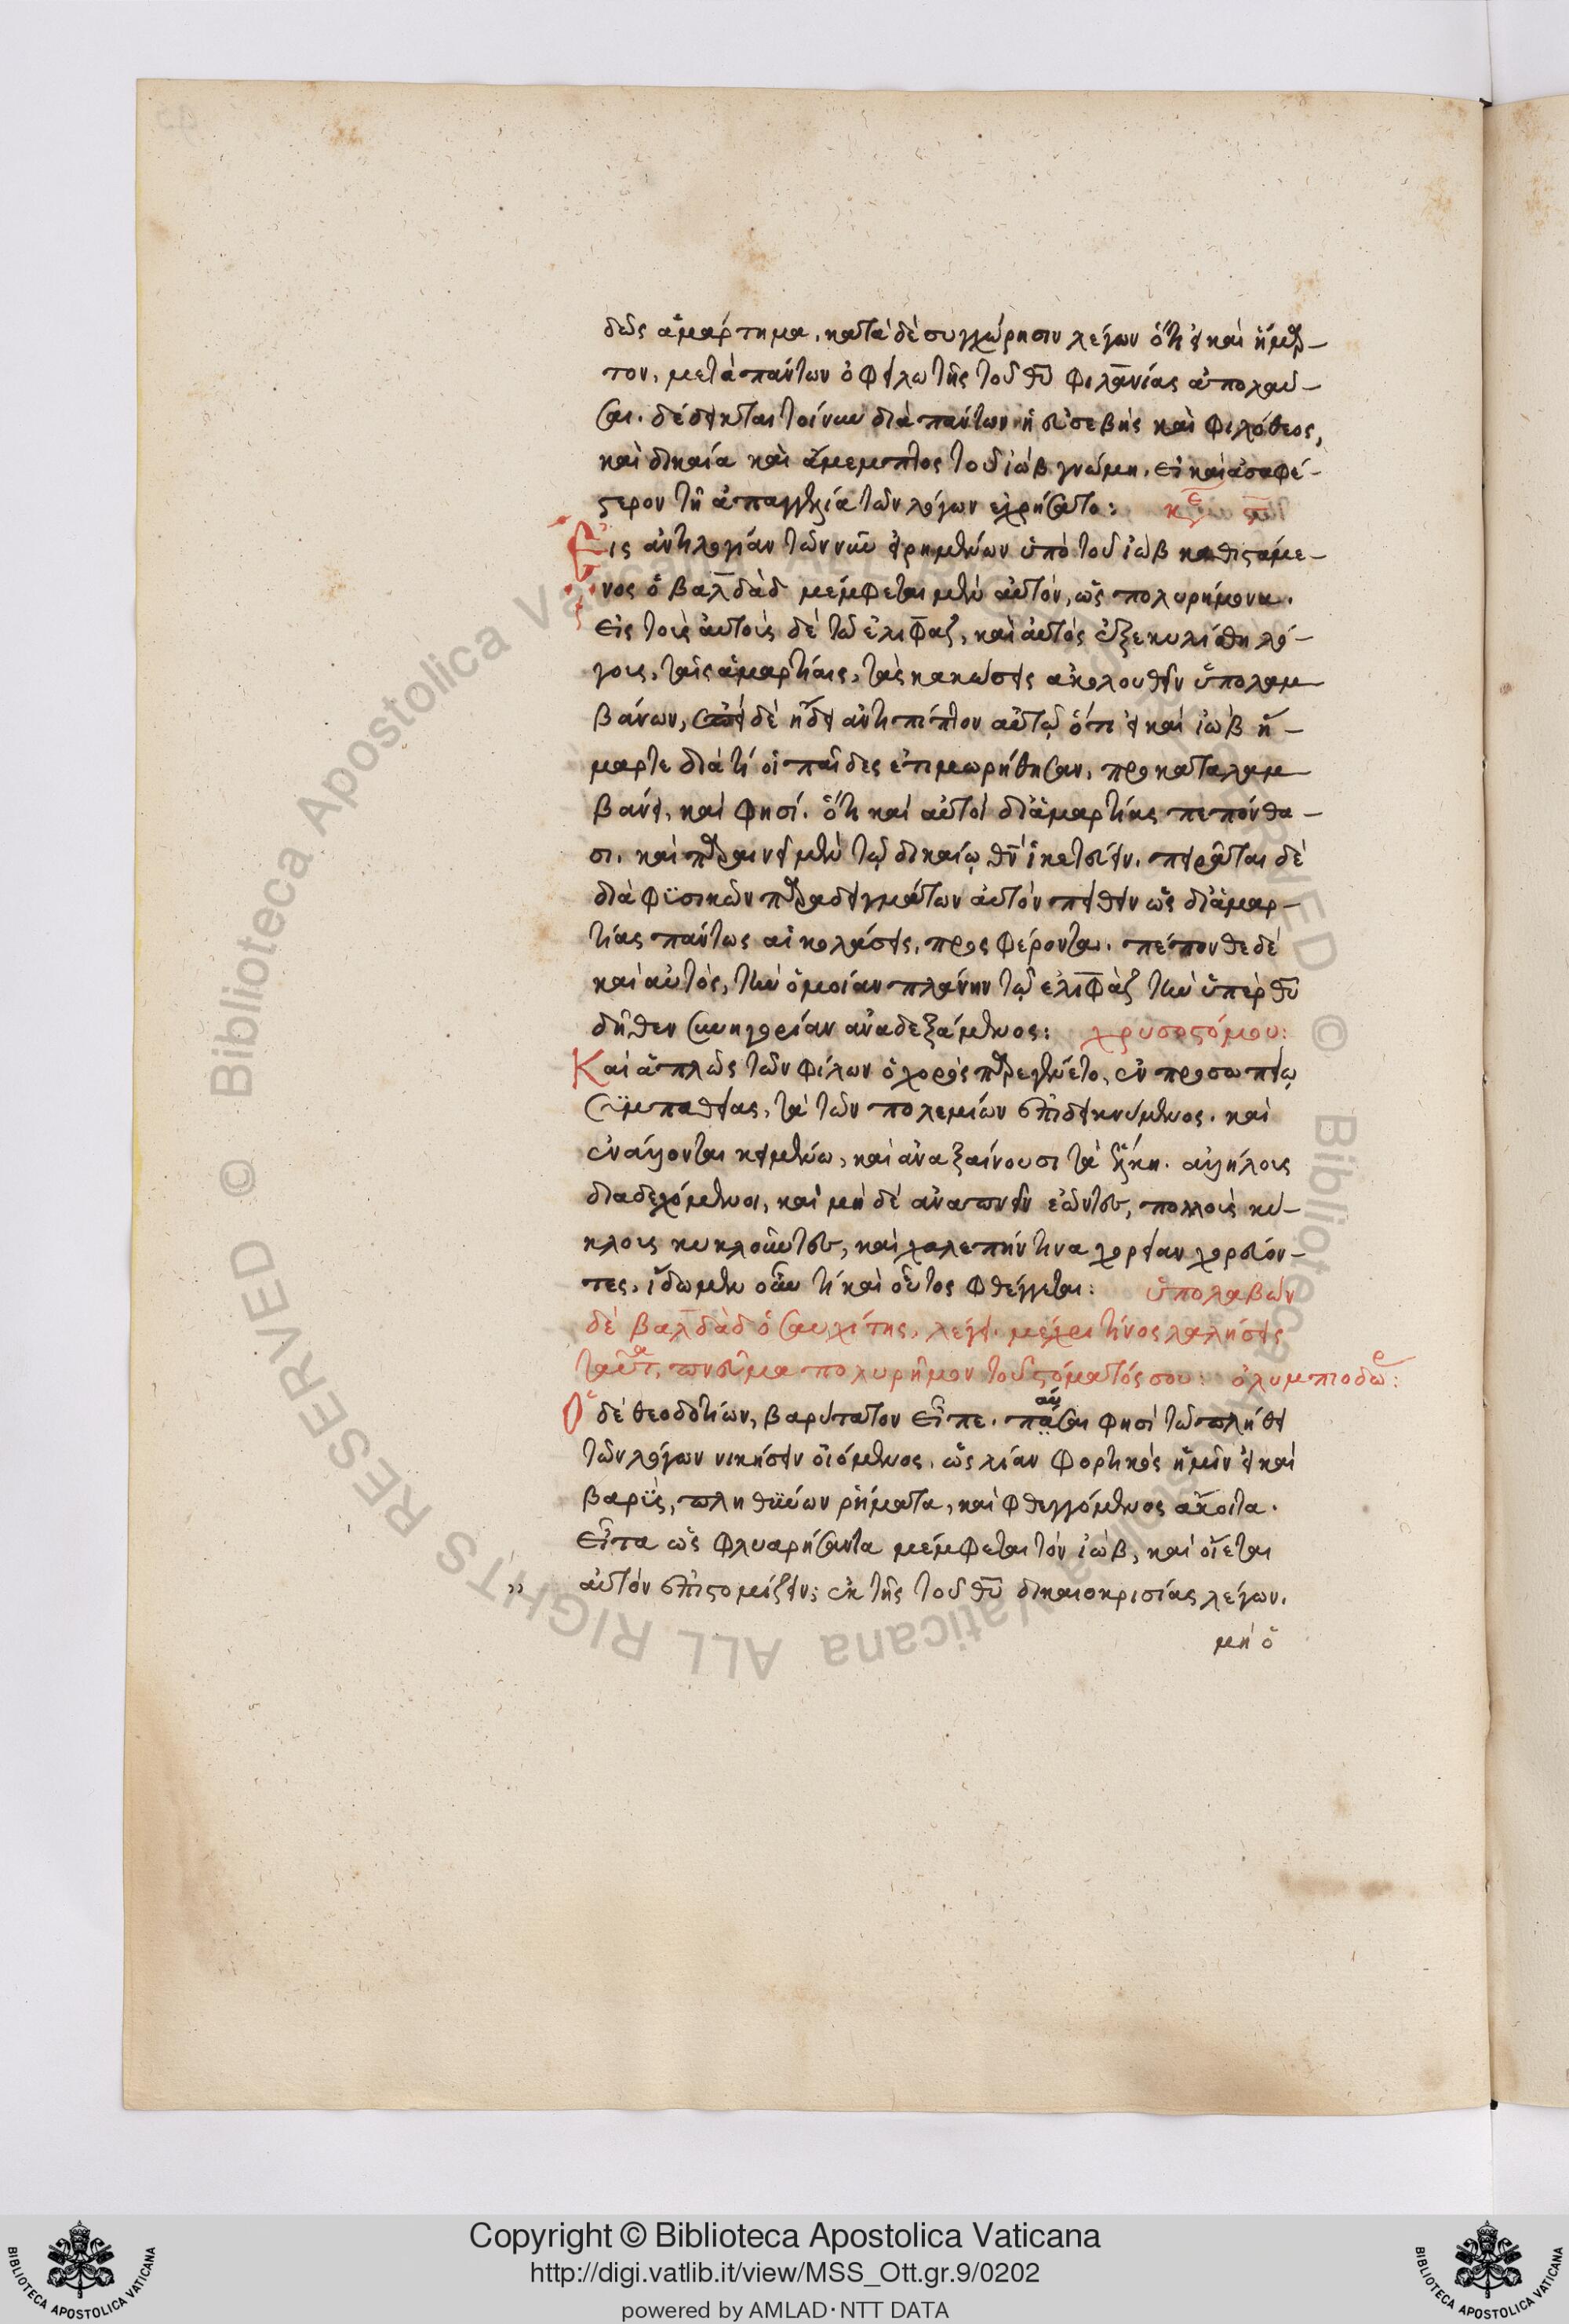 δῶς ἁμάρτημα. κατὰ δὲ συγχώρησιν λέγων ὅτι εἰ καὶ ἥμαρ-
τον, μετὰ πάντων ὀφείλω τῆς τοῦ θῦ φιλανίας ἀπολαῦ-
σαι. δέδεικται τοίνυν διὰ πάντων ἡ εὐσεβὴς καὶ φιλόθεος,
καὶ δικαία καὶ ἄμεμπτος τοῦ ἰὼβ γνώμη. εἰ καὶ ἀσαφέ-
στερον τῇ ἀπαγγελία τῶν λόγων ἐχρήσατο:
Εἰς ἀντιλογίαν τῶν νῦν εἰρημένων ὑπὸ τοῦ ἰὼβ καθιστάμε-
νος ὁ βαλδὰδ μέμφεται μὲν αὐτὸν, ὡς πολυρήμονα.
εἰς τοὺς αὐτοὺς δὲ τῶ ἐλιφαζ, καὶ αὐτὸς ἐξεκυλίσθη λό-
γους, ταῖς ἁμαρτίαις, τὰς κακώσεις ἀκολουθεῖν ὑπολαμ-
βάνων, δὲ ᾔδει ἀντιπίπτον αὐτῷ ὅτι εἰ καὶ ἰὼβ ἥ-
μαρτε διατί οἱ παῖδες ἐτιμωρήθησαν, προκαταλαμ-
βάνει, καὶ φησί. ὅτι καὶ αὐτοὶ δι ἁμαρτίας πεπόνθα-
σι. καὶ παραινεῖ μὲν τῷ δικαίῳ θν ἱκετεύειν. πειρᾶται δὲ
διὰ φϋσικῶν παραδειγμάτων αὐτὸν πείθειν ὡς δι ἁμαρ-
τίας πάντως αἱ κολάσεις, προσφέρονται. πέπονθε δὲ
καὶ αὐτὸς, τὴν ὁμοίαν πλάνην τῷ ἐλιφὰζ τὴν ὑπὲρ θῦ
δῆθεν συνηγορίαν ἀναδεξάμενος: χρυσοστόμου:
Καὶ ἁπλῶς τῶν φίλων ὁ χορὸς παρεγένετο, ἐν προσωπείῳ
συμπαθείας, τὰ τῶν πολεμίων ἐπιδεικνύμενος. καὶ
ἐνάλλονται κειμένω, καὶ ἀναξαίνουσι τὰ ἕλκη. ἀλλήλους
διαδεχόμενοι, καὶ μὴ δὲ ἀναπνεῖν ἐῶντες, πολλοὺς κύ-
κλους κυκλοῦντες, καὶ χαλεπήν τινα χορείαν χορεύον-
τες. ἴδωμεν οὖν τί καὶ οὗτος φθέγγεται: ὑπολαβὼν
δὲ βαλδὰδ ὁ σαυχίτης, λέγει. μέχρι τίνος λαλήσεις
ταῦτα, πνεῦμα πολυρῆμον τοῦ στόματός σου: ὀλυμπιοδώρ:
Ὁ δὲ θεοδοτίων, βαρύτατον εἶπε. παῦσαι φησὶ τῶ πλήθει
τῶν λόγων νικήσειν οἰόμενος. ὡς λίαν φορτικὸς ἡμῖν εἶ καὶ
βαρϋς, πληθϋύων ῥήματα, καὶ φθεγγόμενος ἄκοιτα.
Εἶτα ὡς φλυαρήσαντα μέμφεται τὸν ἰὼβ, καὶ οἴεται
αὐτὸν ἐπιστομίζειν; ἐκ τῆς τοῦ θῦ δικαιοκρισίας λέγων.
μὴ ὁ
Copyright © Biblioteca Apostolica Vaticana
http://digi.vatlib.it/view/MSS_Ott.gr.9/0202
powered by AMLAD·NTT DATA